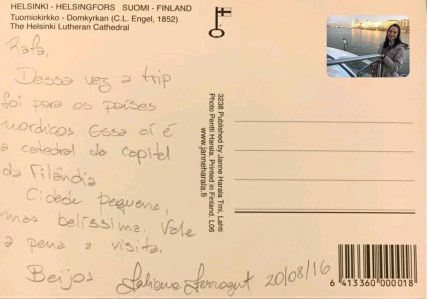 HELSINKI - HELSINGFORS SUOMI - FINLAND
Tuomiokirkko - Domkyrkan (C.L. Engel, 1852)
The Helsinki Lutheran Cathedral
Rafa,
Dessa vez a trip
foi para os países
nórdicos Essa aí é
a catedral da capital
da Filândia
Cidade pequena,
mas belíssima. Vale
a pena a visita.
Beijos
Juliana Ferragut 20/08/16
3238 Published by Janne Harala Tmi, Lahti
Photo Pentti Harala. Printed in Finland. L06
www.janneharala.fi
6 413360 000018